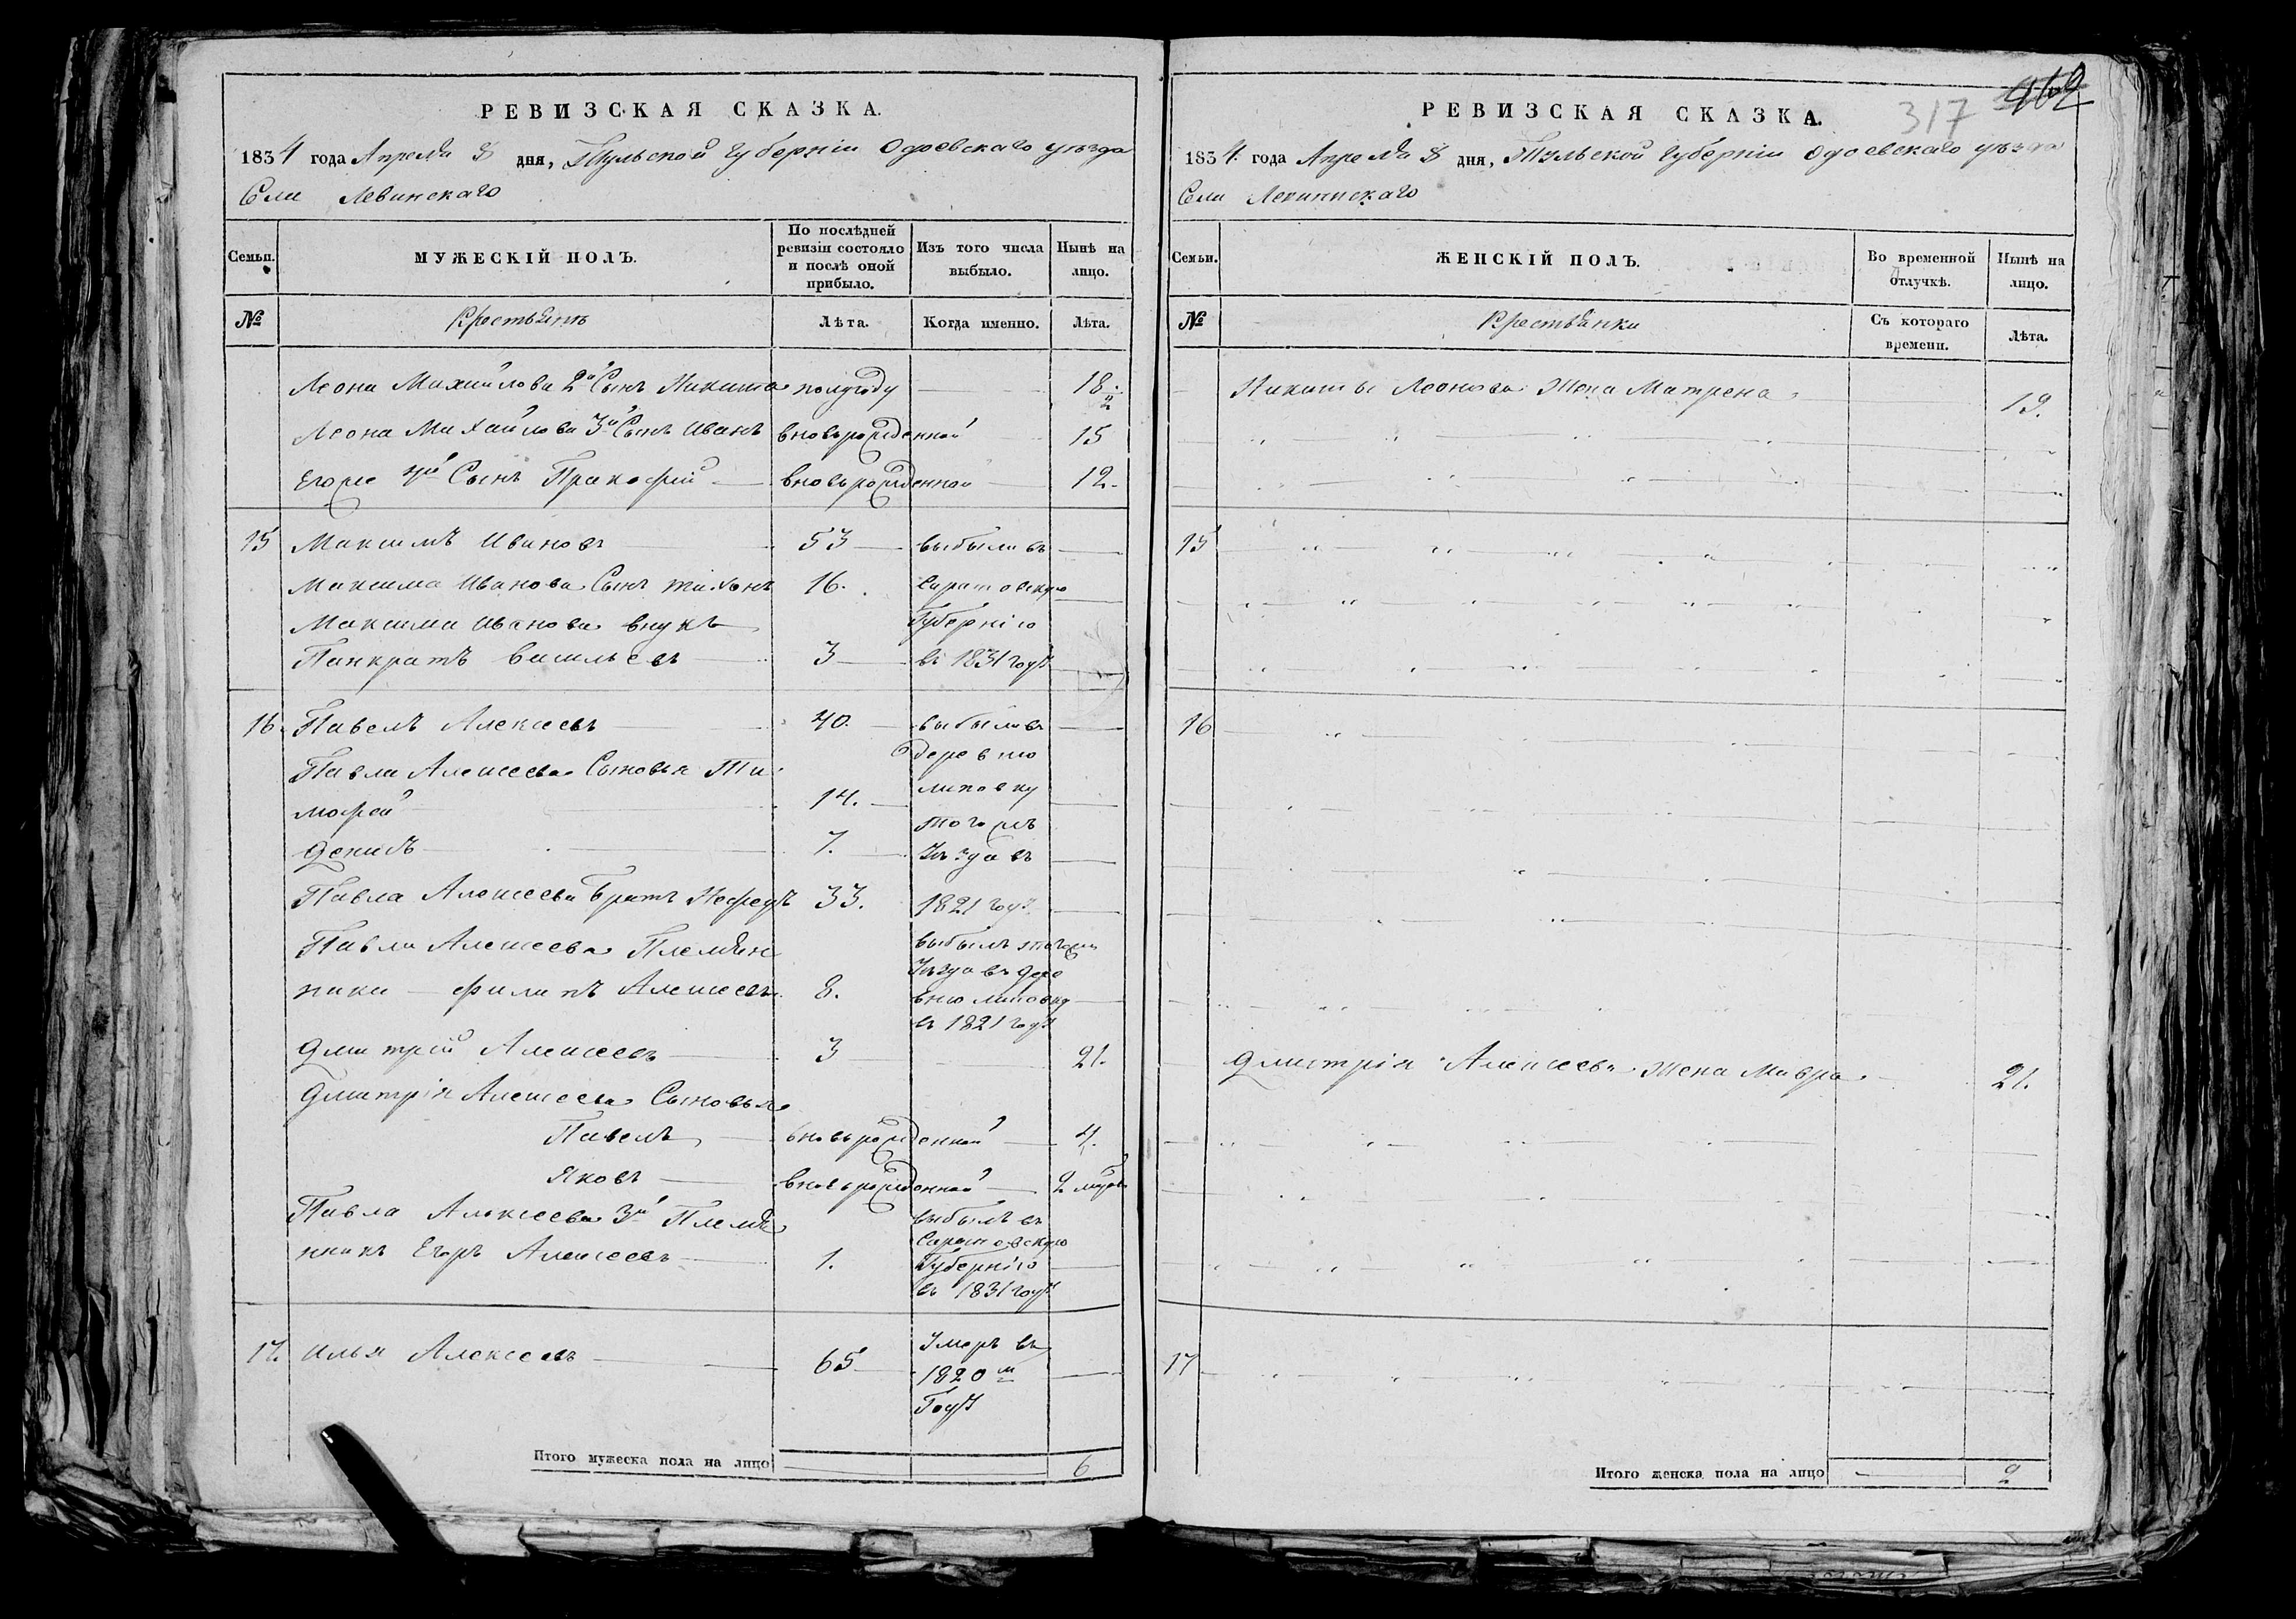 РЕВИЗСКАЯ СКАЗКА.
1834 года Апреля 8 дня, Тульской губернiи Одоевскаго уѣзда
Села Левинскаго
Семьи.
МУЖЕСКIЙ ПОЛЪ.
По послѣдней ревизiи состояло и послѣ оной прибыло.
Изъ того числа выбыло.
Нынѣ на лицо.
№
Крестьянъ
Лѣта.
Когда именно.
Лѣта.
Леона Михайлова 2й Сынъ Никита полугоду 18 ½
Леона Михайлова 3й Сынъ Иванъ вновьрожденной 15
Егоже 4й Сынъ Пракофiй вновьрожденной 12.
15 Максимъ Ивановъ 53 выбыли въ
Максима Иванова Сынъ Тихонъ 16. Саратовскую
Максима Иванова внукъ Губернiю
Панкратъ Васильевъ 3 въ 1831 году
16. Павелъ Алексеевъ 40. выбыли въ
деревню
Павла Алексеева Сыновья Ти
мофей 14. липовку
тогожъ
Денисъ 7. Уезда въ
Павла Алексеева Братъ Нефедъ 33. 1821 году
Павла Алексеева Племян выбылъ тогожъ
Уезда въ дере
ники Филипъ Алексеевъ 8. вню липовку
въ 1821 году
Дмитрiй Алексеевъ 3 21.
Дмитрiя Алексеева Сыновья
Павелъ вновьрожденной 4.
Яковъ вновьрожденной 2
Павла Алексеева 3й Племя выбылъ въ
Саратовскую
нникъ Егоръ Алексеевъ 1. Губернiю
въ 1831 году
17. Илья Алексеевъ 65 Умеръ въ
1820м
Году
Итого мужеска пола на лицо 6
317
РЕВИЗСКАЯ СКАЗКА.
1834. года Апреля 8 дня, Тульской губернiи Одоевскаго уѣзда
Села Левинскаго
Семьи.
ЖЕНСКIЙ ПОЛЪ.
Во временной отлучкѣ.
Нынѣ на лицо.
№
Крестьянки
Съ котораго времени.
Лѣта.
Никиты Леонова Жена Матрена 19.
15
16
Дмитрiя Алексеева Жена Мавра 21.
17
Итого женска пола на лицо 2